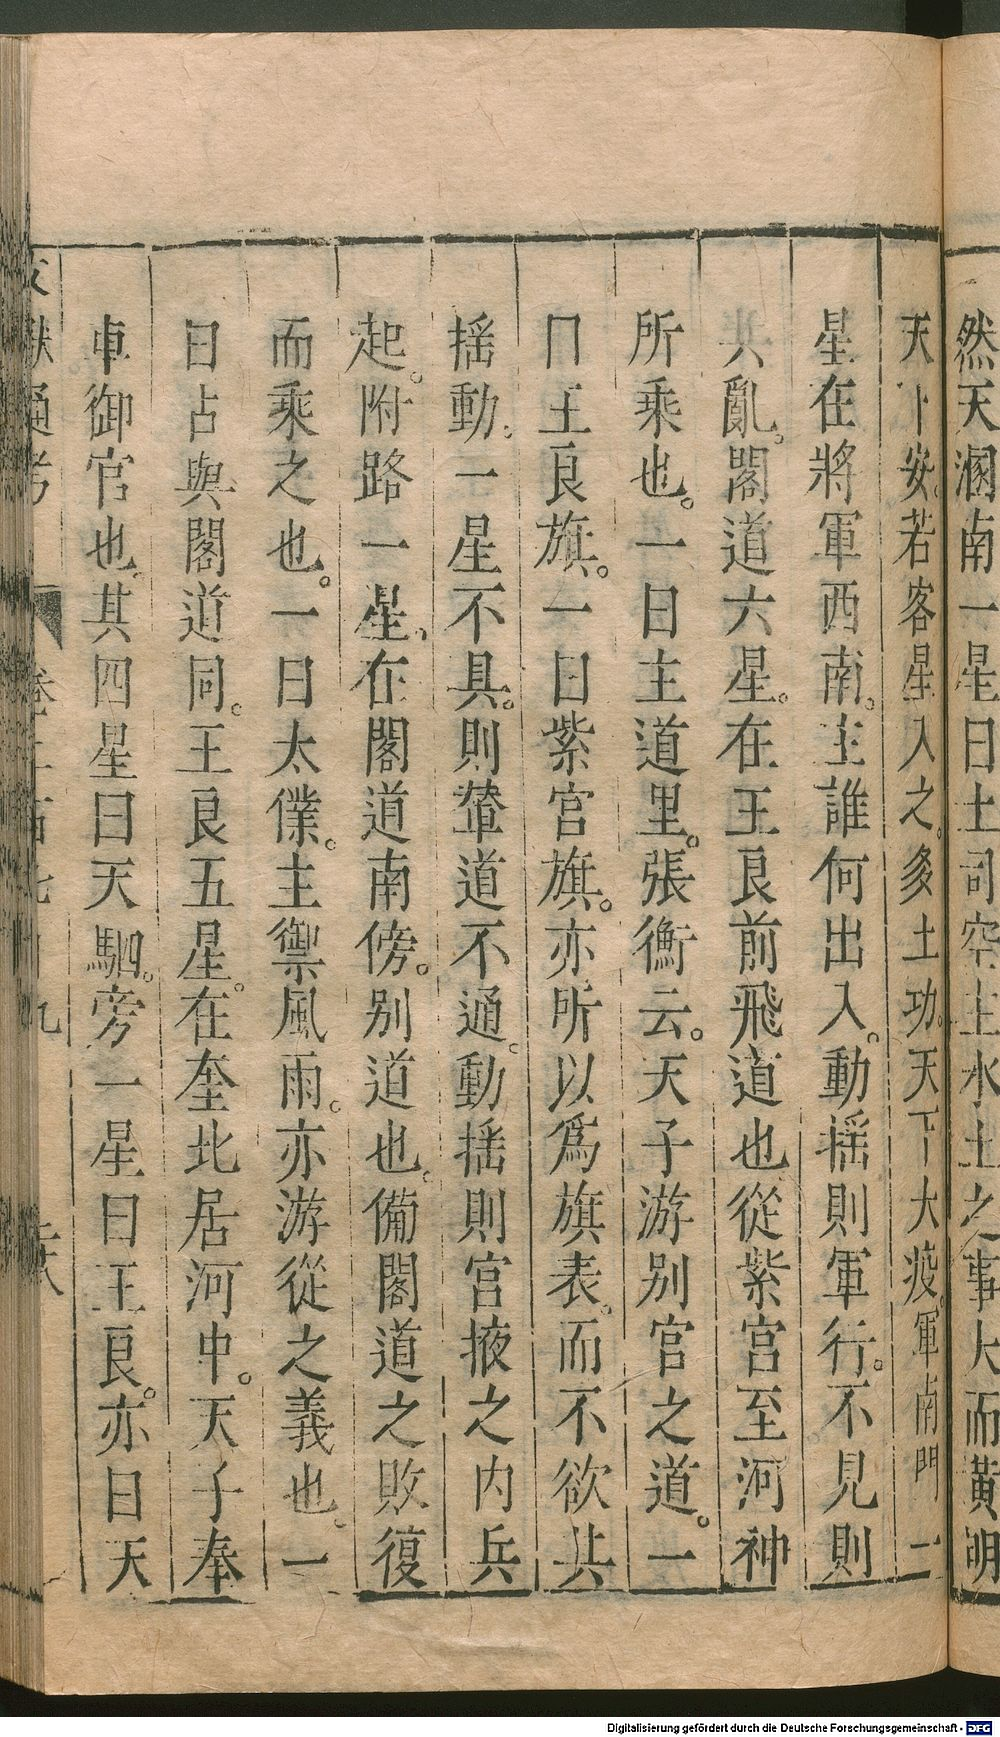 然天溷南一星曰土司空主水土之事大而黃明
天下安。若客星入之。多土功。天下大疫。軍南門一
星在將軍西南。主誰何出入。動揺則軍行。不見則
共亂。閣道六星。在王良前飛道也從紫宮至河神
所乘也。一曰主道里。張衡云。天子游别宮之道。一
曰王良旗。一曰紫宮旗。亦所以爲旗表。而不欲共
揺動。一星不具。則輦道不通。動揺則宮掖之内兵
起。附路一星。在閣道南傍。别道也。備閣道之敗復
而乘之也。一曰太僕。主禦風雨。亦游從之義也。一
曰占與閣道同。王良五星。在奎北居河中。天子奉
車御官也。其四星曰天駟。旁一星曰王良。亦曰天
文獻通考 卷二百七十九 二十八
Digitalisierung gefördert durch die Deutsche Forschungsgemeinschaft - DFG